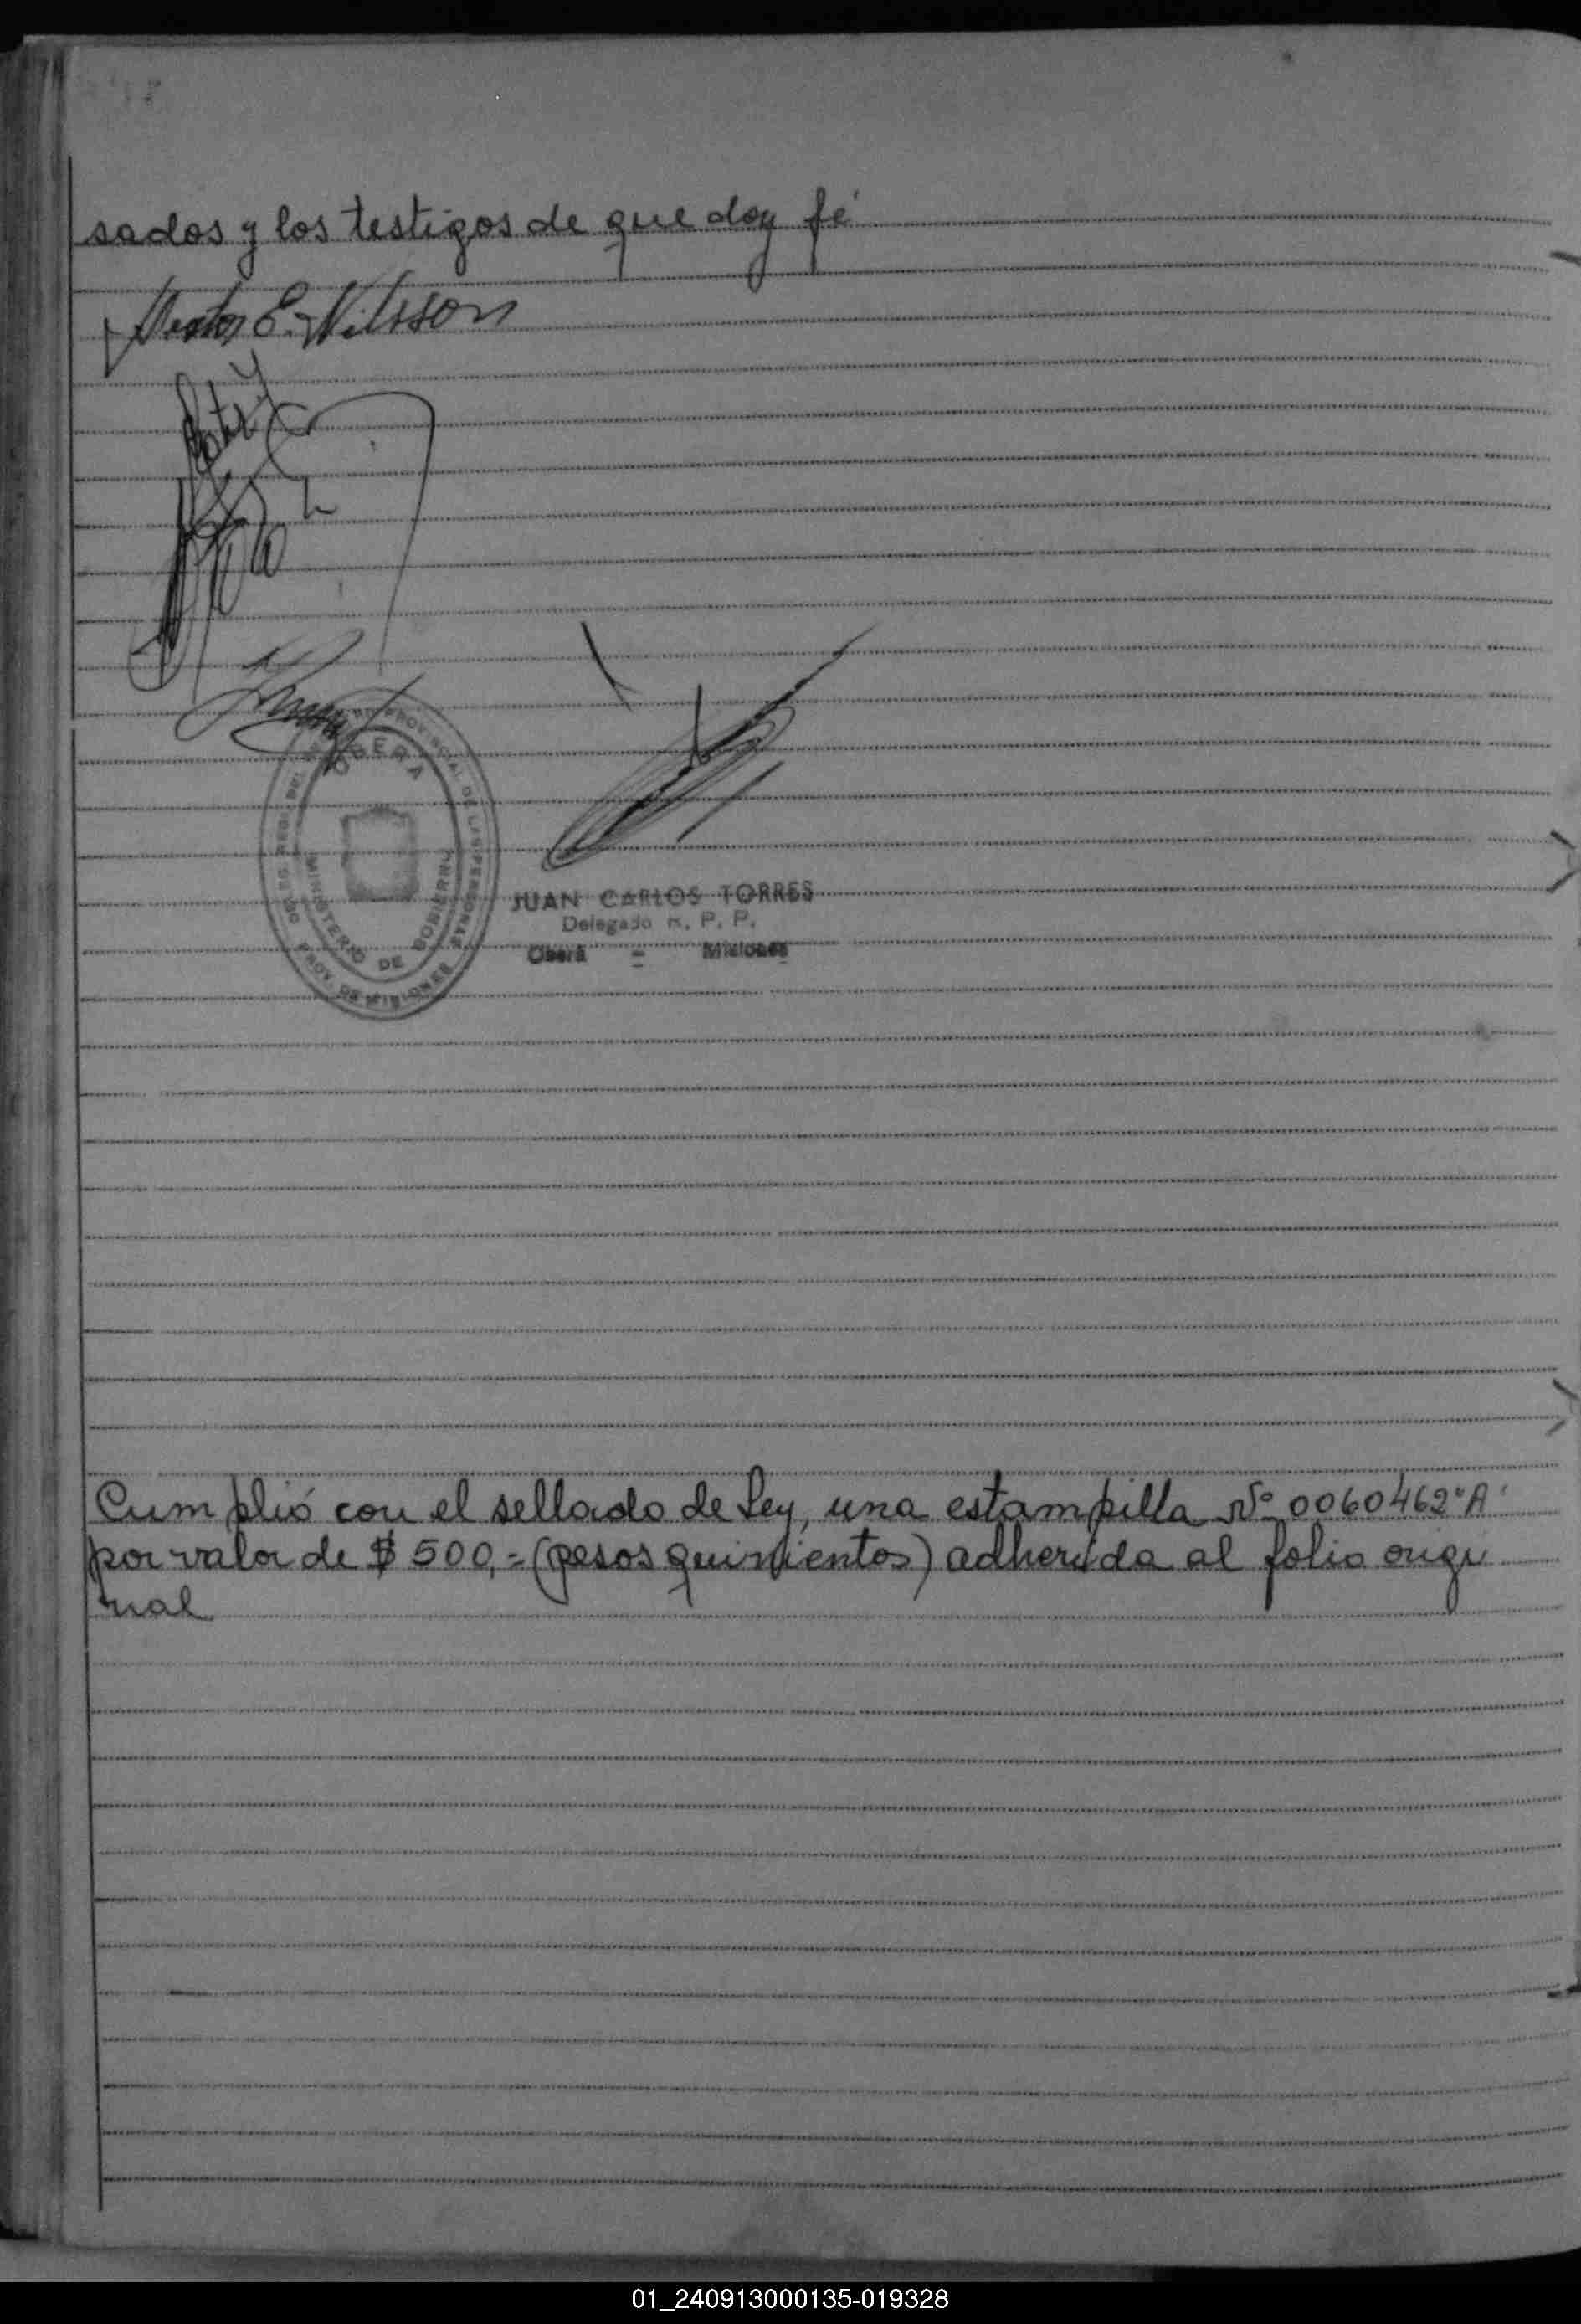 sados y los testigos de que doy fé
Nestor E. Nilsson
OBERA
MINISTERIO DE GOBIERNO
PROV. DE MISIONES
JUAN CARLOS TORRES
Delegado R. P. P.
Oberá - Misiones
Cumplió con el sellado de Ley, una estampilla Nº 0060462"A"
por valor de $ 500,= (pesos quinientos) adherida al folio origi
nal
01_240913000135-019328